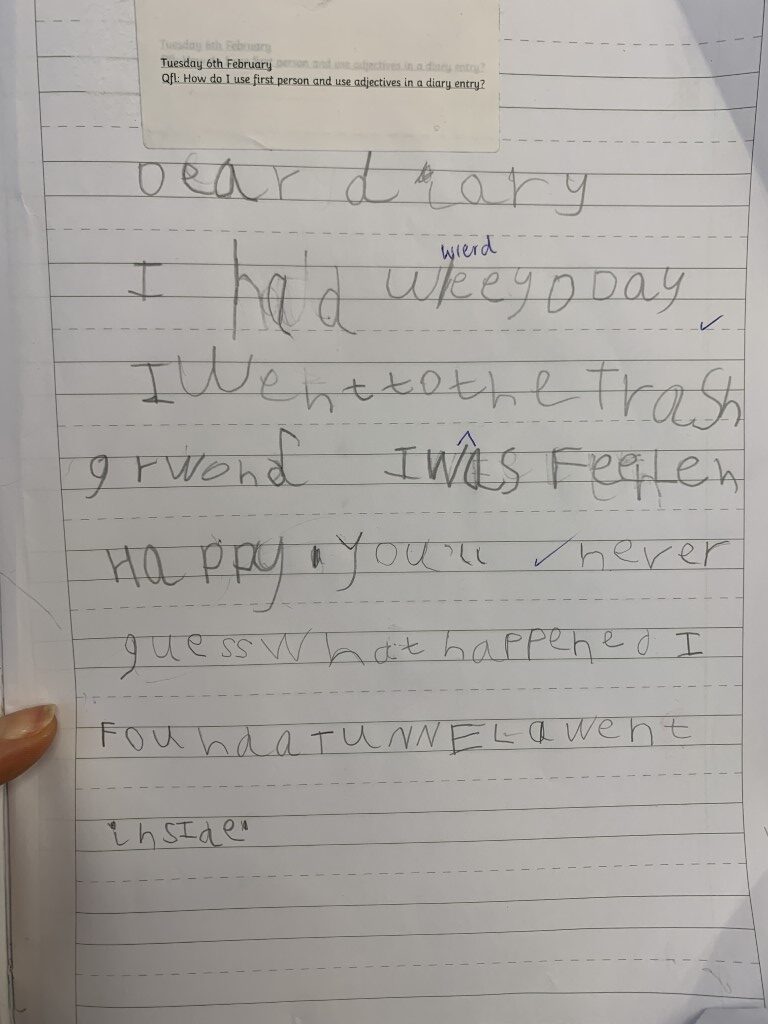 Tuesday 6th February
Tuesday 6th February
QfL: How do I use first person and use adjectives in a diary entry?
Dear diary
wierd
I had wkeeyd Day
I went to the Trash
grwond I was Feelen
Happy. you'll never
guess what happened I
Found a TUNNEL a went
inside.